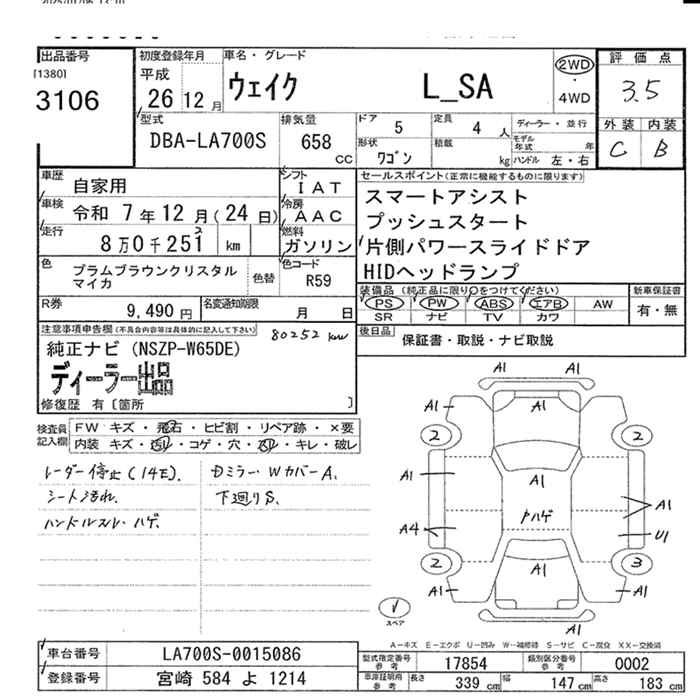 出品番号
[1380]
3106
初度登録年月
平成
26 12 月
車名・グレード
ウェイク L_SA
2WD
・
4WD
評価点
3.5
外装 内装
C B
型式
DBA-LA700S
排気量
658 CC
ドア 5
定員 4 人
形状 ワゴン
積載 kg
ディーラー・並行
モデル年式 年
ハンドル 左・右
車歴 自家用
シフト IAT
車検 令和 7 年 12 月 ( 24 日)
冷房 AAC
走行 8 万 0 千 251 km
2
燃料 ガソリン
色 プラムブラウンクリスタル
マイカ
色替
色コード R59
R券 9,490 円
名変通知期限 月 日
セールスポイント(正常に機能するものに限ります)
スマートアシスト
プッシュスタート
片側パワースライドドア
HIDヘッドランプ
装備品 (純正品に限り○をつけてください)
PS PW ABS エアB AW
SR ナビ TV カワ
新車保証書
有・無
後日品
保証書・取説・ナビ取説
注意事項申告欄(不具合内容等は具体的に記入して下さい)
80252 km
純正ナビ (NSZP-W65DE)
ディーラー出品
修復歴 有〔箇所 〕
検査員記入欄
FW キズ・飛石・ヒビ割・リペア跡・×要
内装 キズ・汚レ・コゲ・穴・スレ・キレ・破レ
レーダー停止(14E).
シート汚れ.
ハンドルスレ・ハゲ.
Dミラー・WカバーA.
下廻りS.
A1 A1
A1 A1 A1
2 2
A1 A1 A1
ハゲ
A4 U1
2 A1 3
A1 A1
A1
スペア
A-キズ E-エクボ U-凹み W-補修跡 S-サビ C-腐食 XX-交換済
車台番号 LA700S-0015086
登録番号 宮崎 584 よ 1214
型式指定番号 参考 17854
類別区分番号 参考 0002
車庫証明用 参考 長さ 339 cm 幅 147 cm 高さ 183 cm